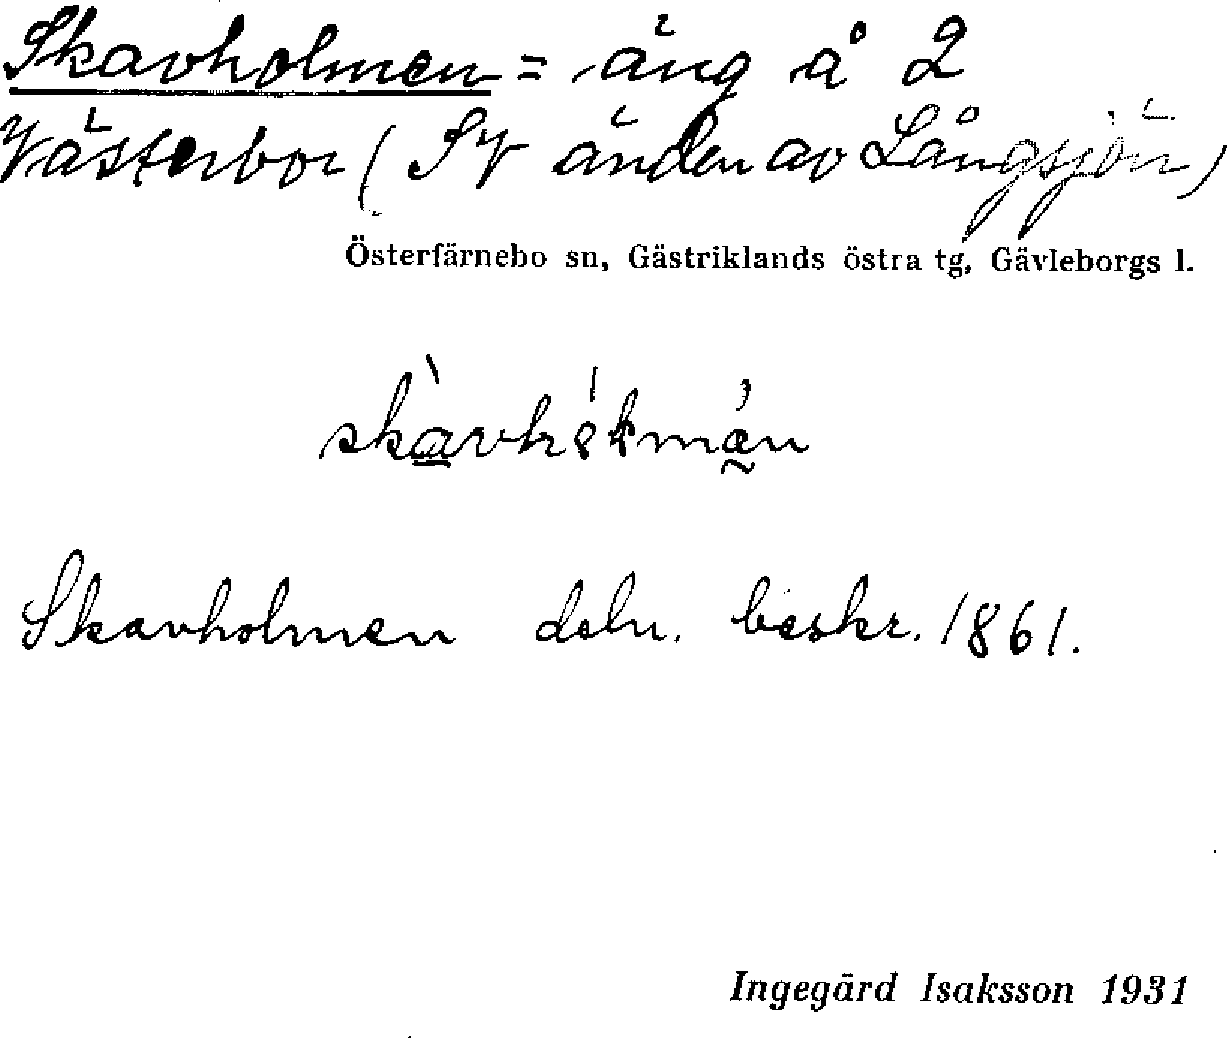 Skavholmen = äng å 2
Västerbor (SV änden av Långsjön)
Österfärnebo sn, Gästriklands östra tg, Gävleborgs l.
Skavholmen deln. beskr. 1861.
Ingegärd Isaksson 1931